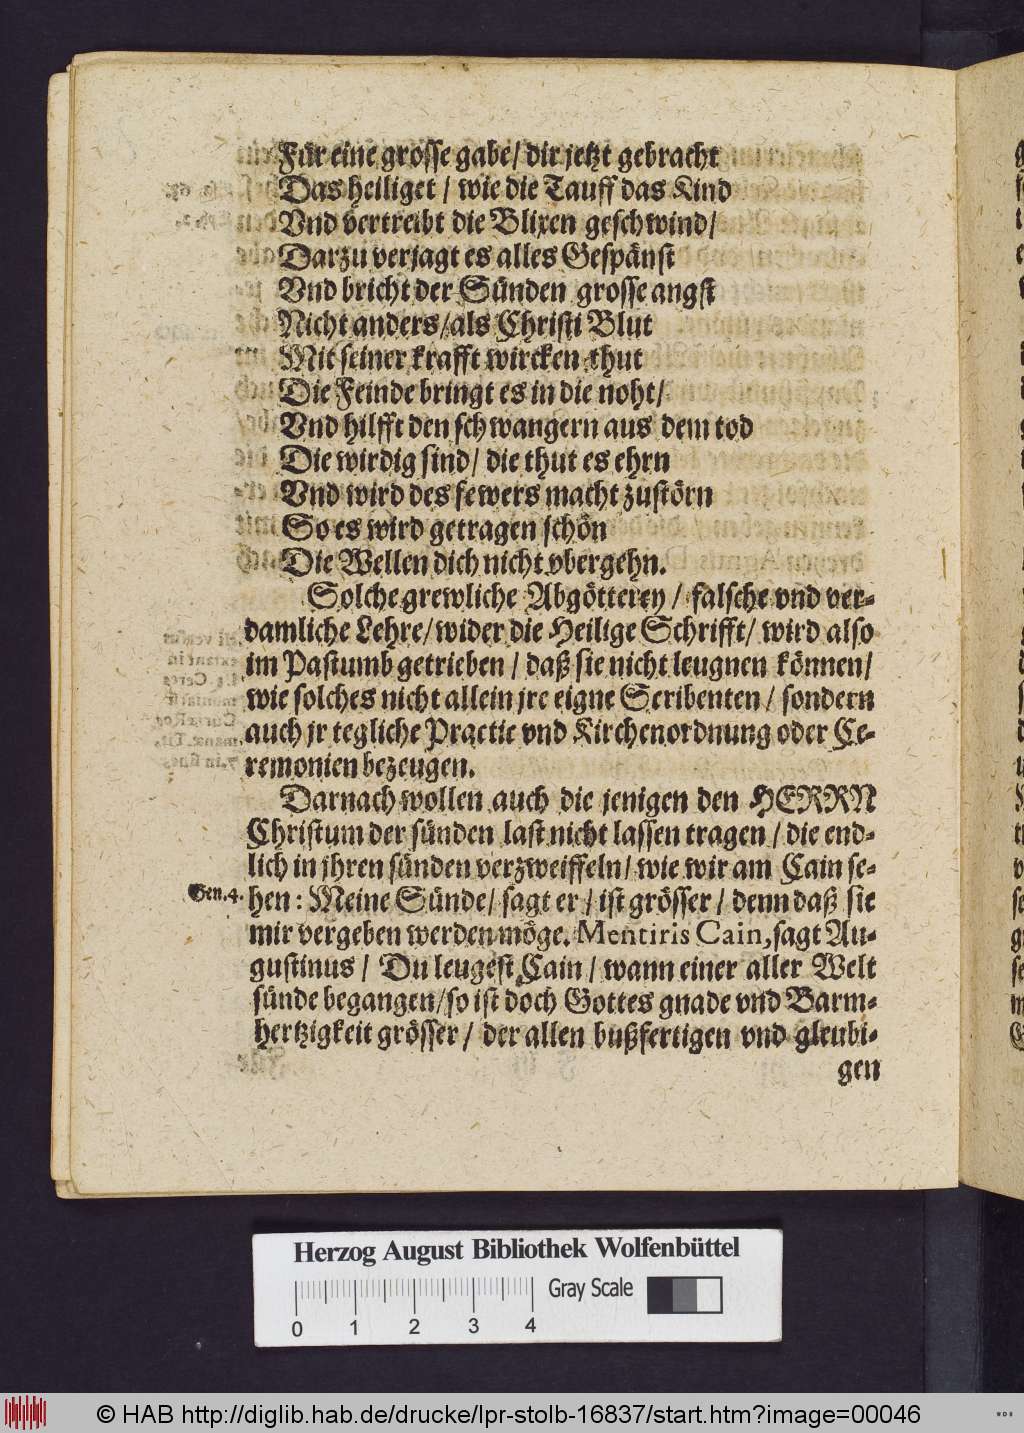 Für eine grosse gabe / dir jetzt gebracht
Das heiliget / wie die Tauff das Kind
Vnd vertreibt die Blixen geschwind /
Darzu verjagt es alles Gespänst
Vnd bricht der Sünden grosse angst
Nicht anders / als Christi Blut
Mit seiner krafft wircken thut
Die Feinde bringt es in die noht /
Vnd hilfft den schwangern aus dem tod
Die wirdig sind / die thut es ehrn
Vnd wird des fewers macht zustörn
So es wird getragen schön
Die Wellen dich nicht vbergehn.
Solche grewliche Abgötterey / falsche vnd ver-
damliche Lehre / wider die Heilige Schrifft / wird also
im Pastumb getrieben / daß sie nicht leugnen können /
wie solches nicht allein jre eigne Scribenten / sondern
auch jr tegliche Practic vnd Kirchenordnung oder Ce-
remonien bezeugen.
Darnach wollen auch die jenigen den HERRN
Christum der sünden last nicht lassen tragen / die end-
lich in jhren sünden verzweiffeln / wie wir am Cain se-
Gen. 4. hen: Meine Sünde / sagt er / ist grösser / denn daß sie
mir vergeben werden möge. Mentiris Cain, sagt Au-
gustinus / Du leugest Cain / wann einer aller Welt
sünde begangen / so ist doch Gottes gnade vnd Barm-
hertzigkeit grösser / der allen bußfertigen vnd gleubi-
gen
Herzog August Bibliothek Wolfenbüttel
Gray Scale
0 1 2 3 4
© HAB http://diglib.hab.de/drucke/lpr-stolb-16837/start.htm?image=00046